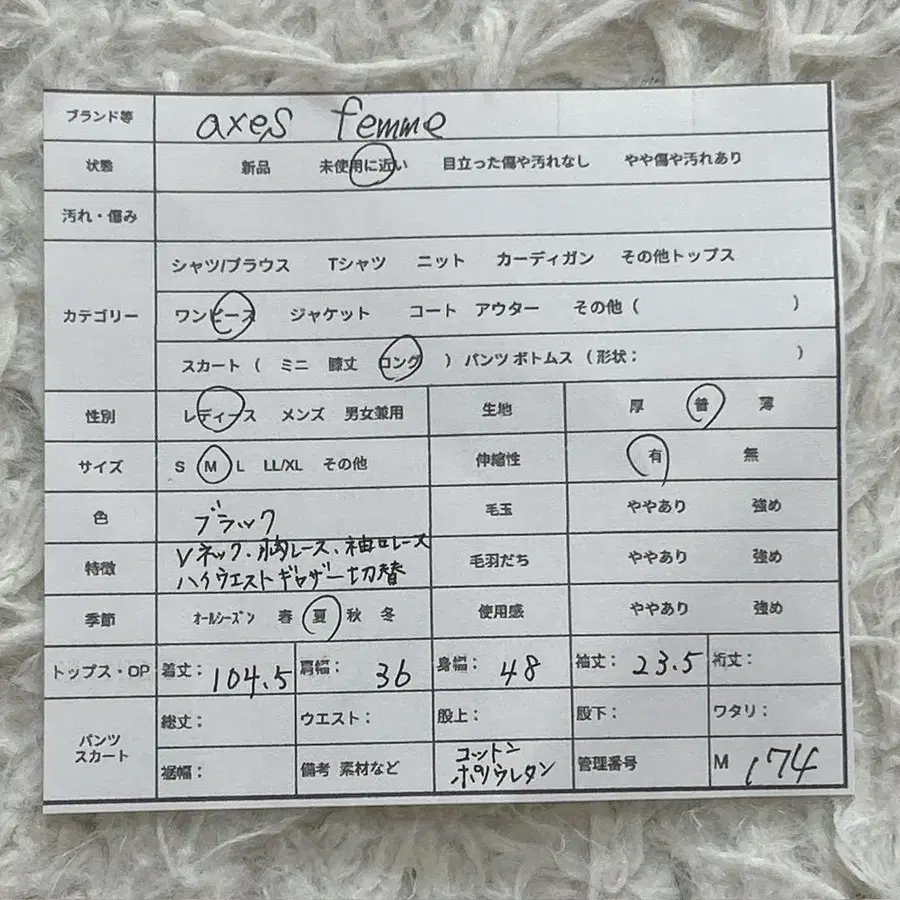 ブランド等 axes femme
状態 新品 未使用に近い 目立った傷や汚れなし やや傷や汚れあり
汚れ・傷み
カテゴリー シャツ/ブラウス Tシャツ ニット カーディガン その他トップス
ワンピース ジャケット コート アウター その他 ( )
スカート ( ミニ 膝丈 ロング ) パンツ ボトムス ( 形状: )
性別 レディース メンズ 男女兼用 生地 厚 普 薄
サイズ S M L LL/XL その他 伸縮性 有 無
色 ブラック 毛玉 ややあり 強め
特徴 Vネック、胸レース、袖口レース
ハイウエストギャザー切替 毛羽だち ややあり 強め
季節 オールシーズン 春 夏 秋 冬 使用感 ややあり 強め
トップス・OP 着丈: 104.5 肩幅: 36 身幅: 48 袖丈: 23.5 裄丈:
パンツ スカート 総丈: ウエスト: 股上: 股下: ワタリ:
裾幅: 備考 素材など コットン ポリウレタン 管理番号 M 174